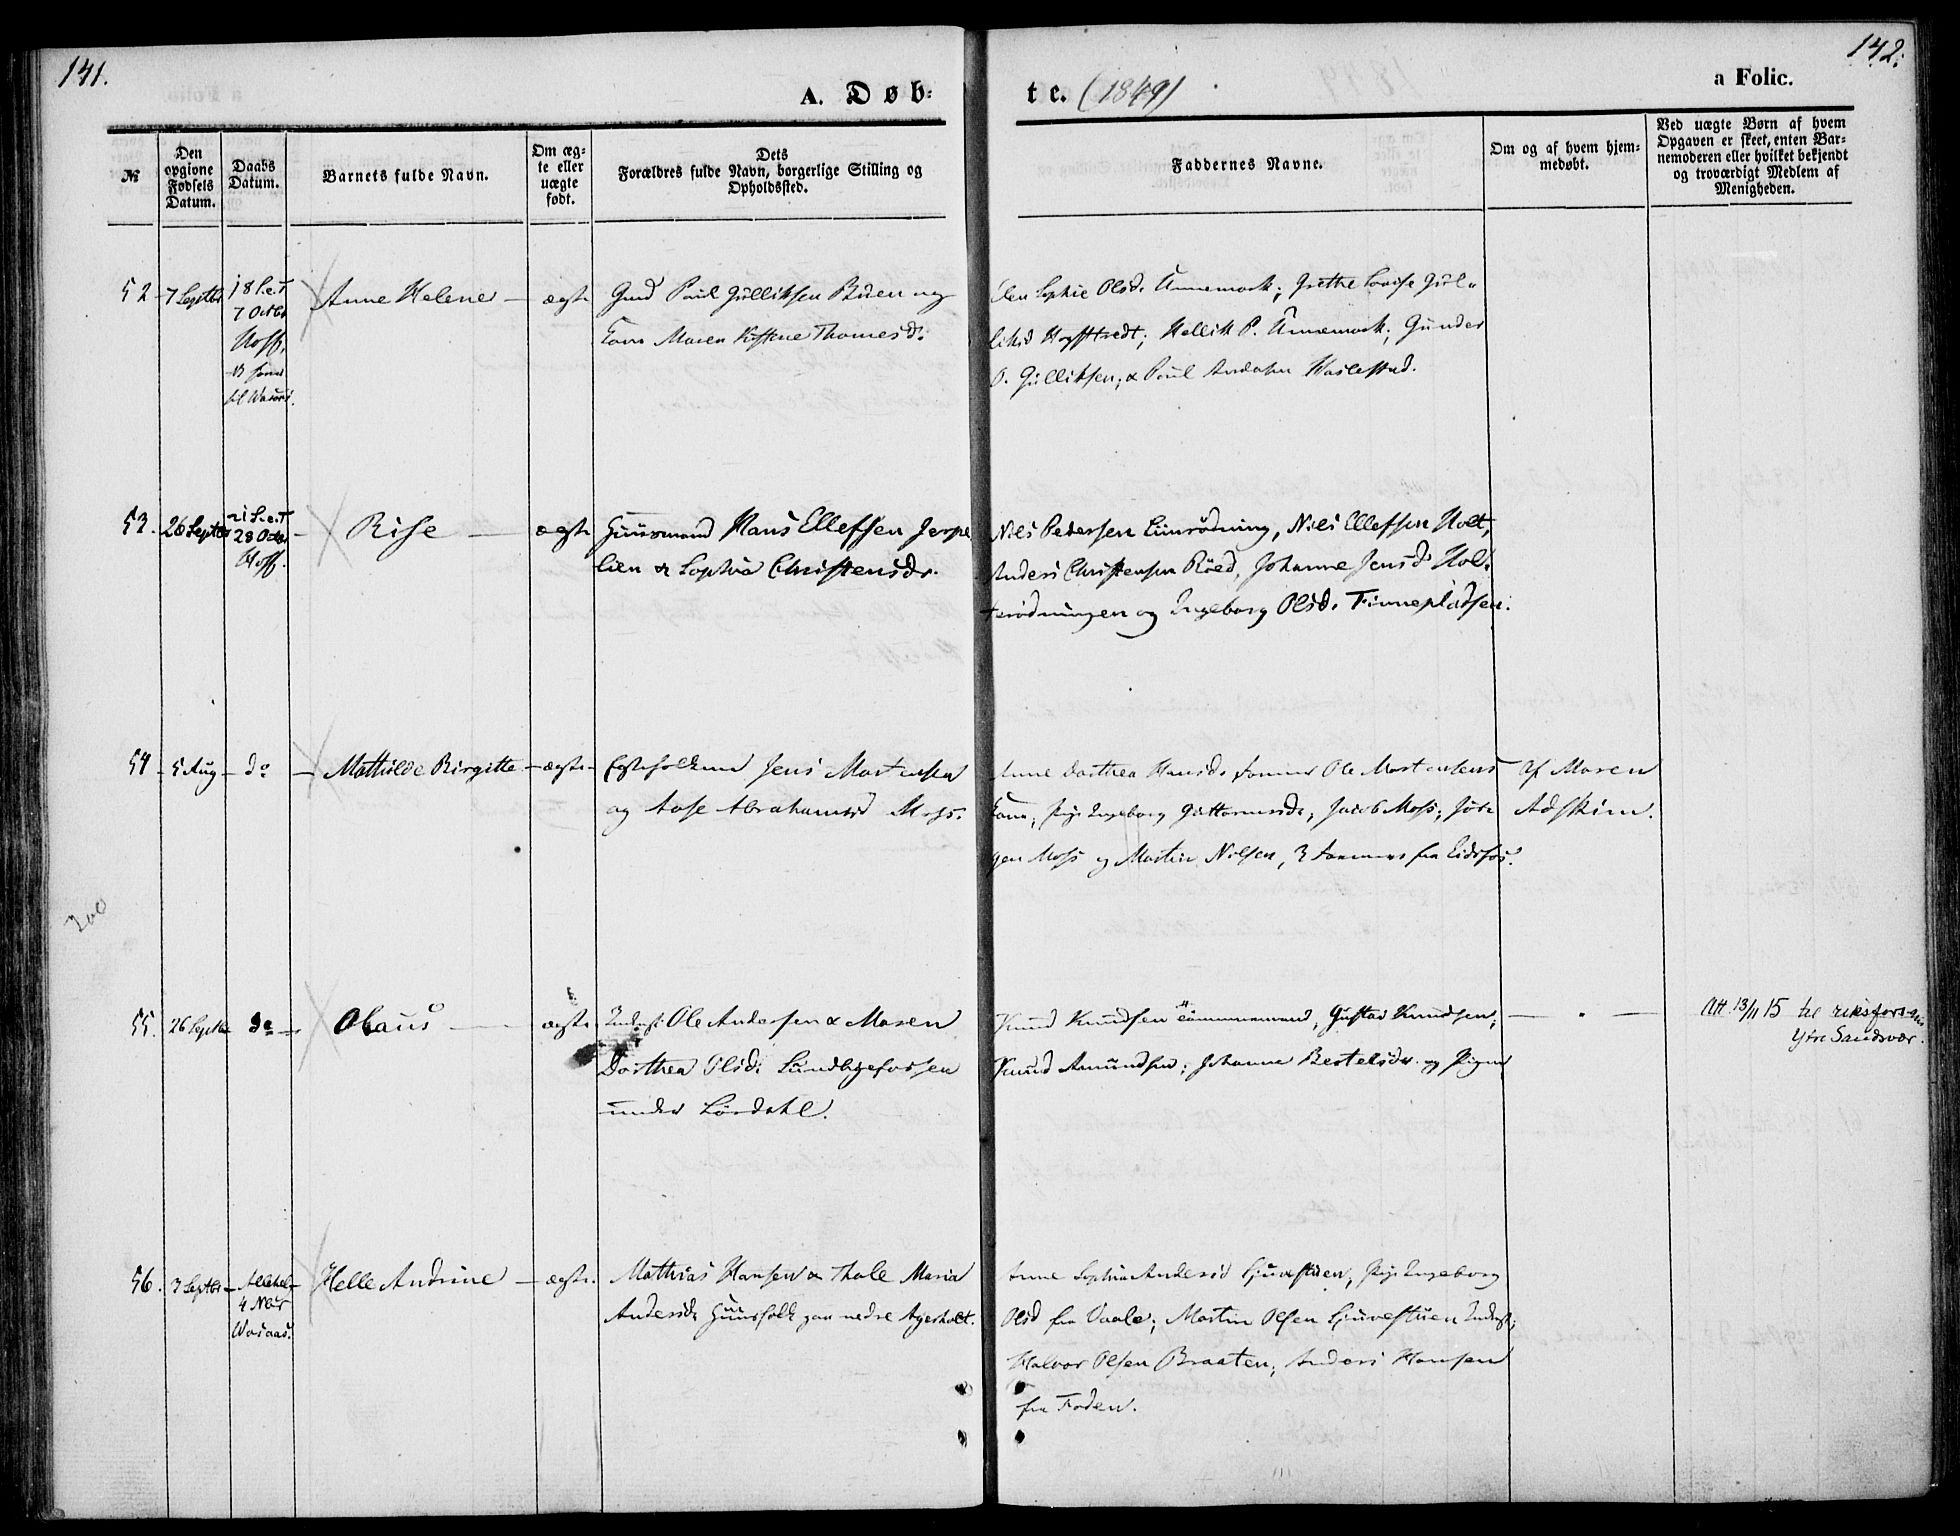 141.
142.
A. Døb-
te. (1849)
a Folio.
№
Den opgivne Fødsels Datum.
Daabs Datum.
Barnets fulde Navn.
Om ægte eller uægte født.
Dets Forældres fulde Navn, borgerlige Stilling og Opholdssted.
Faddernes Navne.
Om og af hvem hjemmedøbt.
Ved uægte Børn af hvem Opgaven er skeet, enten Barnemoderen eller hvilket bekjendt og troværdigt Medlem af Menigheden.
52
7 Septbr
18 S. e. T
7 Octbr
Hoff,
Anne Helene
ægte
Gmd Paul Gulliksen Buen og
Kone Maren Thomesd.
Sophie Olsd. Unnemark; Grethe Lovise Gul-
liksd Hellik P. Unnemark; Gunder
P. Gulliksen; & Paul Haslestad.
53.
26 Septbr
21 S. e. T
28 Octbr
Hoff.
Rise
ægte
Huusmand Hans Ellefsen Jerpe
lien & Sophia Christensdr.
Niels Pedersen Niels Ellefsen Holt,
Anders Christensen Røed, Johanne Jensd Hol-
terødningen og Ingeborg Olsd. Finnepladsen.
54
5 Aug
do
Mathilde Birgitte
ægte
Egtefolkene Jens Mortensen
og Aase Abrahamsd Moss.
Anne Dorthea Hansd. Ole Mortensens
Kone, Pige Ingeborg Guttormsdr, Jacob Moss; Jør-
gen Moss og Martin Nilsen, fra Eidsfos.
Af Maren
Adskim.
200
55.
26 Septbr
do
Olaus
ægte
Inderst Ole Andersen & Maren
Dorthea Olsd.
under
Knud Knudsen Gustav Knudsen,
Knud Amundsen; Johanne Bertelsdr. og Pigen
Att 13/11 15 til riksfors.
Ytre Sandsvær.
56.
3 Septbr
4 Nbr
Helle Andrine
ægte.
Mathias Hansen & Thale Maria
Andersdr Huusfolk paa nedre Agerholt.
Anne Sophia Andersd Pige Ingeborg
Olsd fra Vaale; Martin Olsen Inderst;
Halvor Olsen Braaten; Anders Hansen
fra Foden.